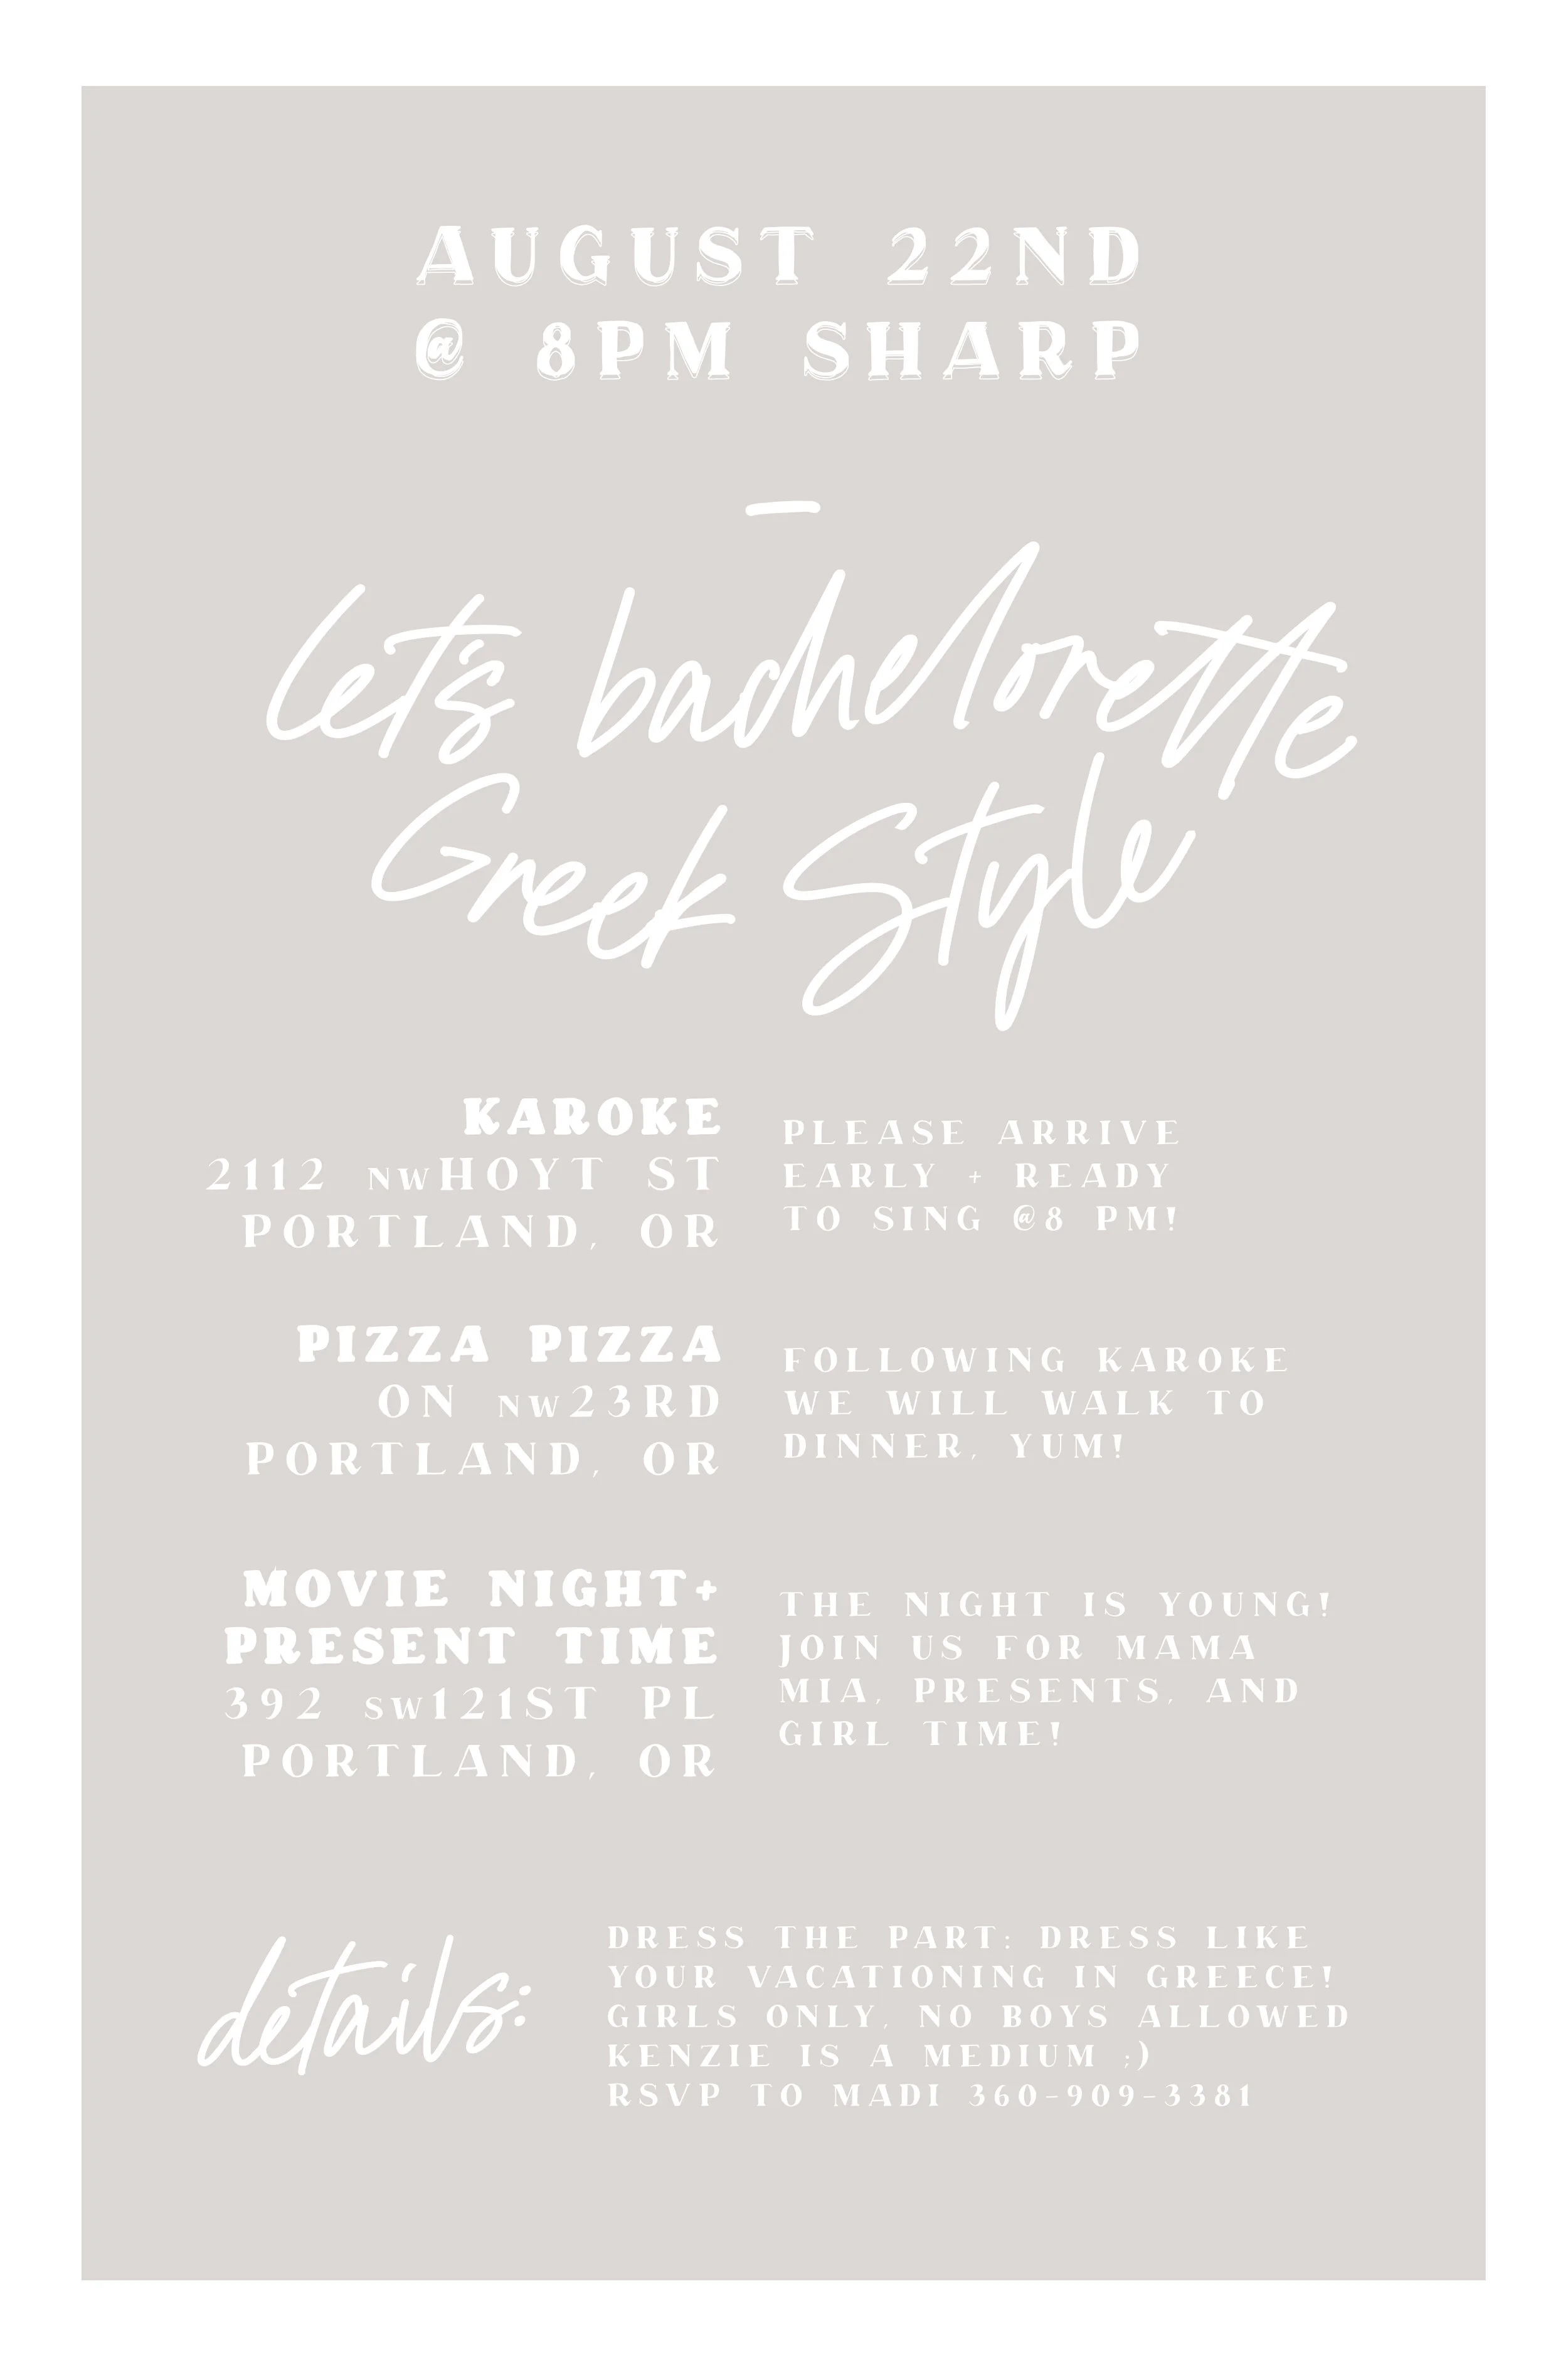 AUGUST 22ND
@ 8PM SHARP
let's bachelorette
Greek Style
KAROKE
2112 NWHOYT ST
PORTLAND, OR
PLEASE ARRIVE
EARLY + READY
TO SING @8 PM!
PIZZA PIZZA
ON NW23RD
PORTLAND, OR
FOLLOWING KAROKE
WE WILL WALK TO
DINNER, YUM!
MOVIE NIGHT+
PRESENT TIME
392 SW121ST PL
PORTLAND, OR
THE NIGHT IS YOUNG!
JOIN US FOR MAMA
MIA, PRESENTS, AND
GIRL TIME!
details:
DRESS THE PART: DRESS LIKE
YOUR VACATIONING IN GREECE!
GIRLS ONLY, NO BOYS ALLOWED
KENZIE IS A MEDIUM ;)
RSVP TO MADI 360-909-3381